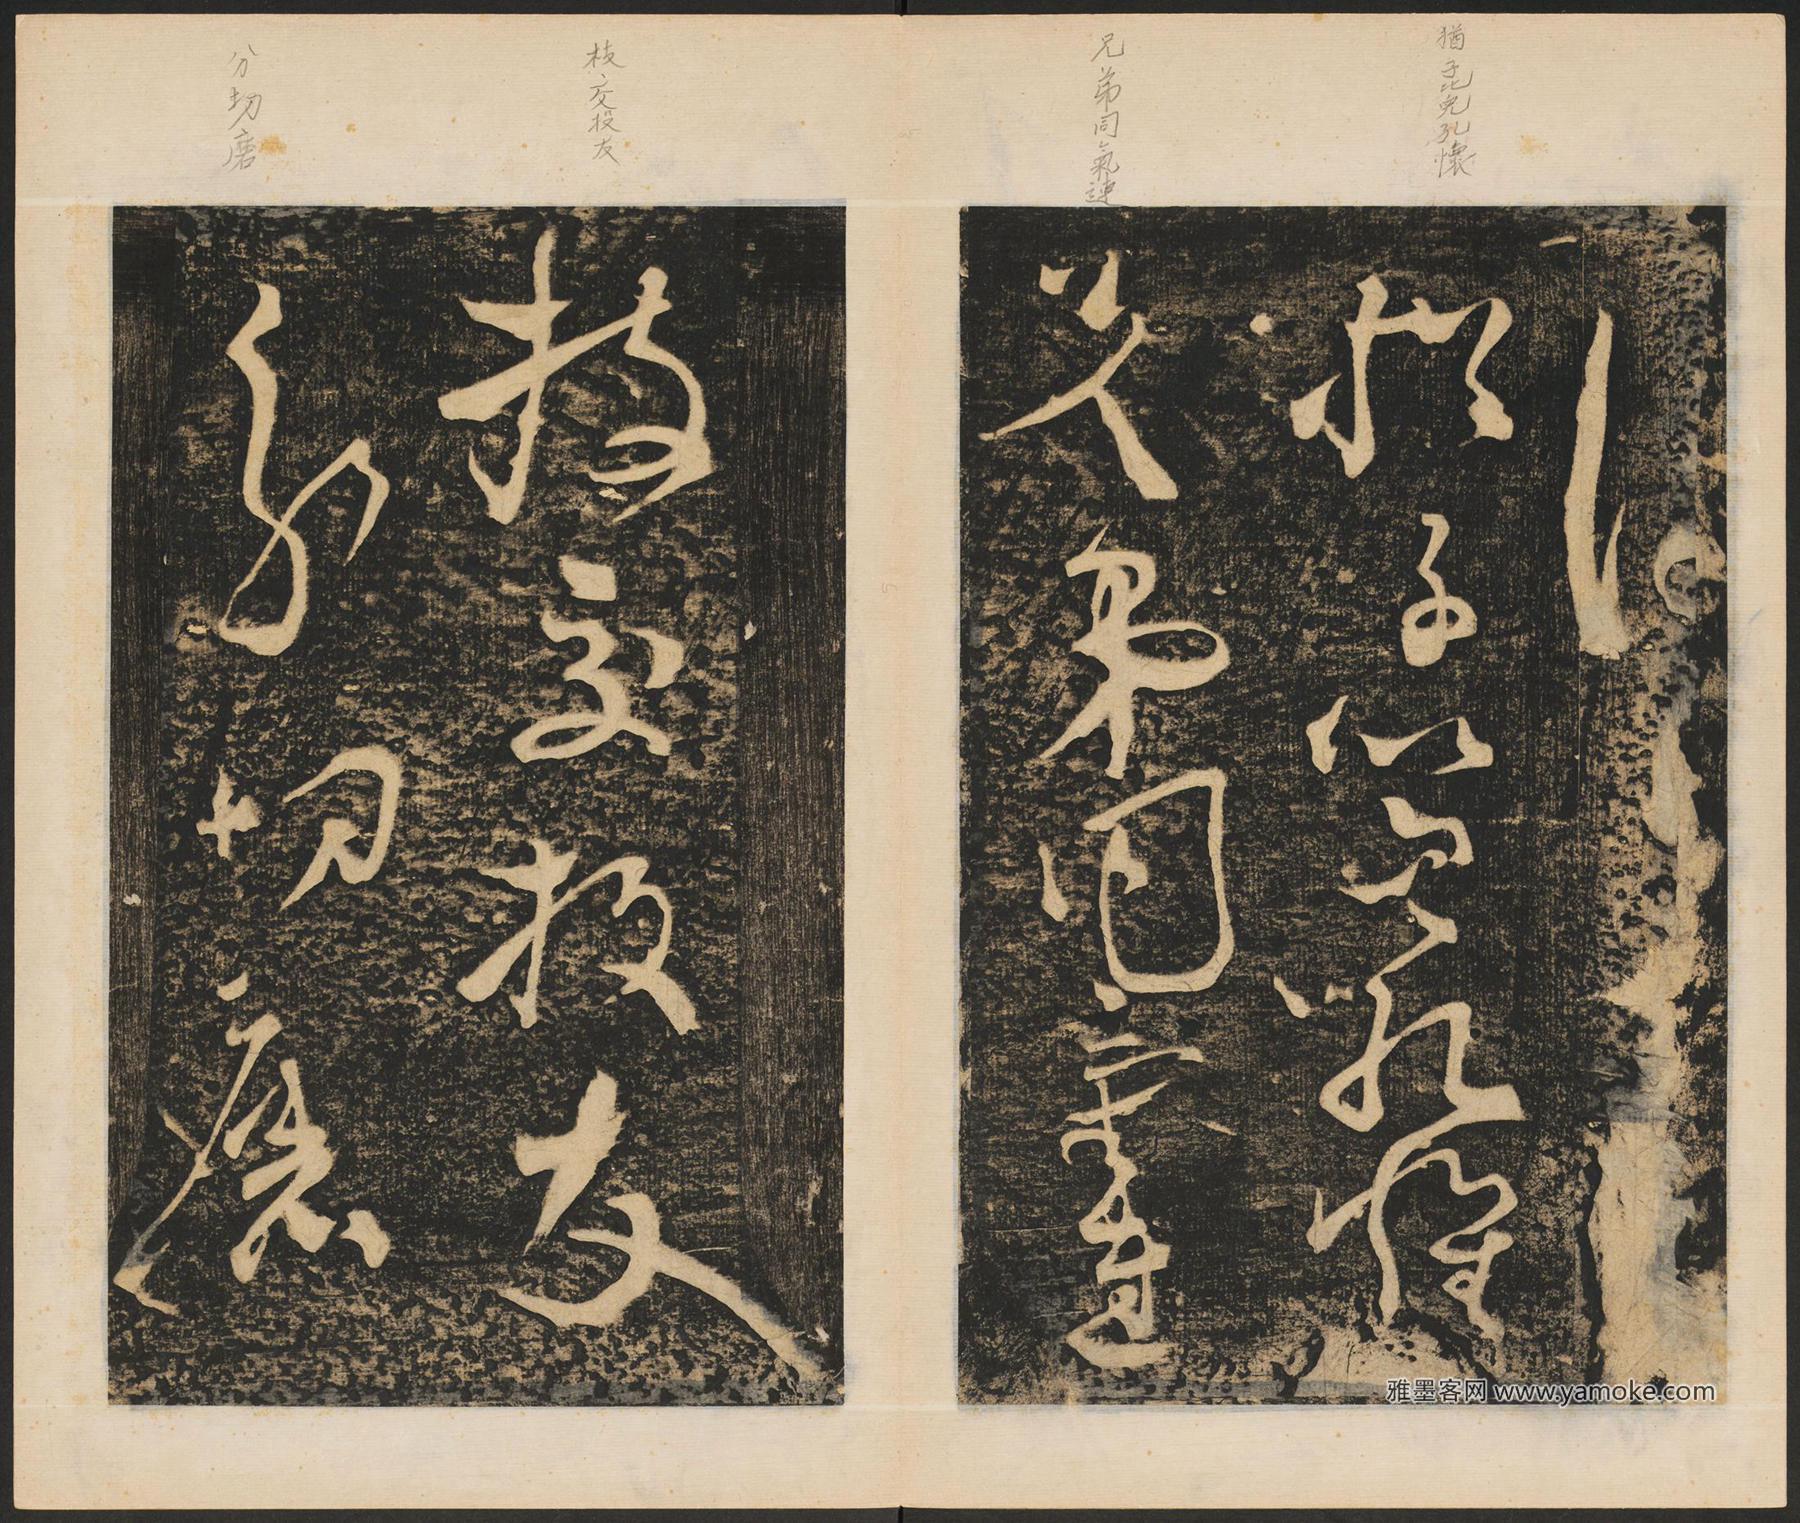 猶子比兒孔懷
兄弟同氣連
枝交投友
分切磨
猶子比兒孔懷
兄弟同氣連
枝交投友
分切磨
雅墨客网 www.yamoke.com